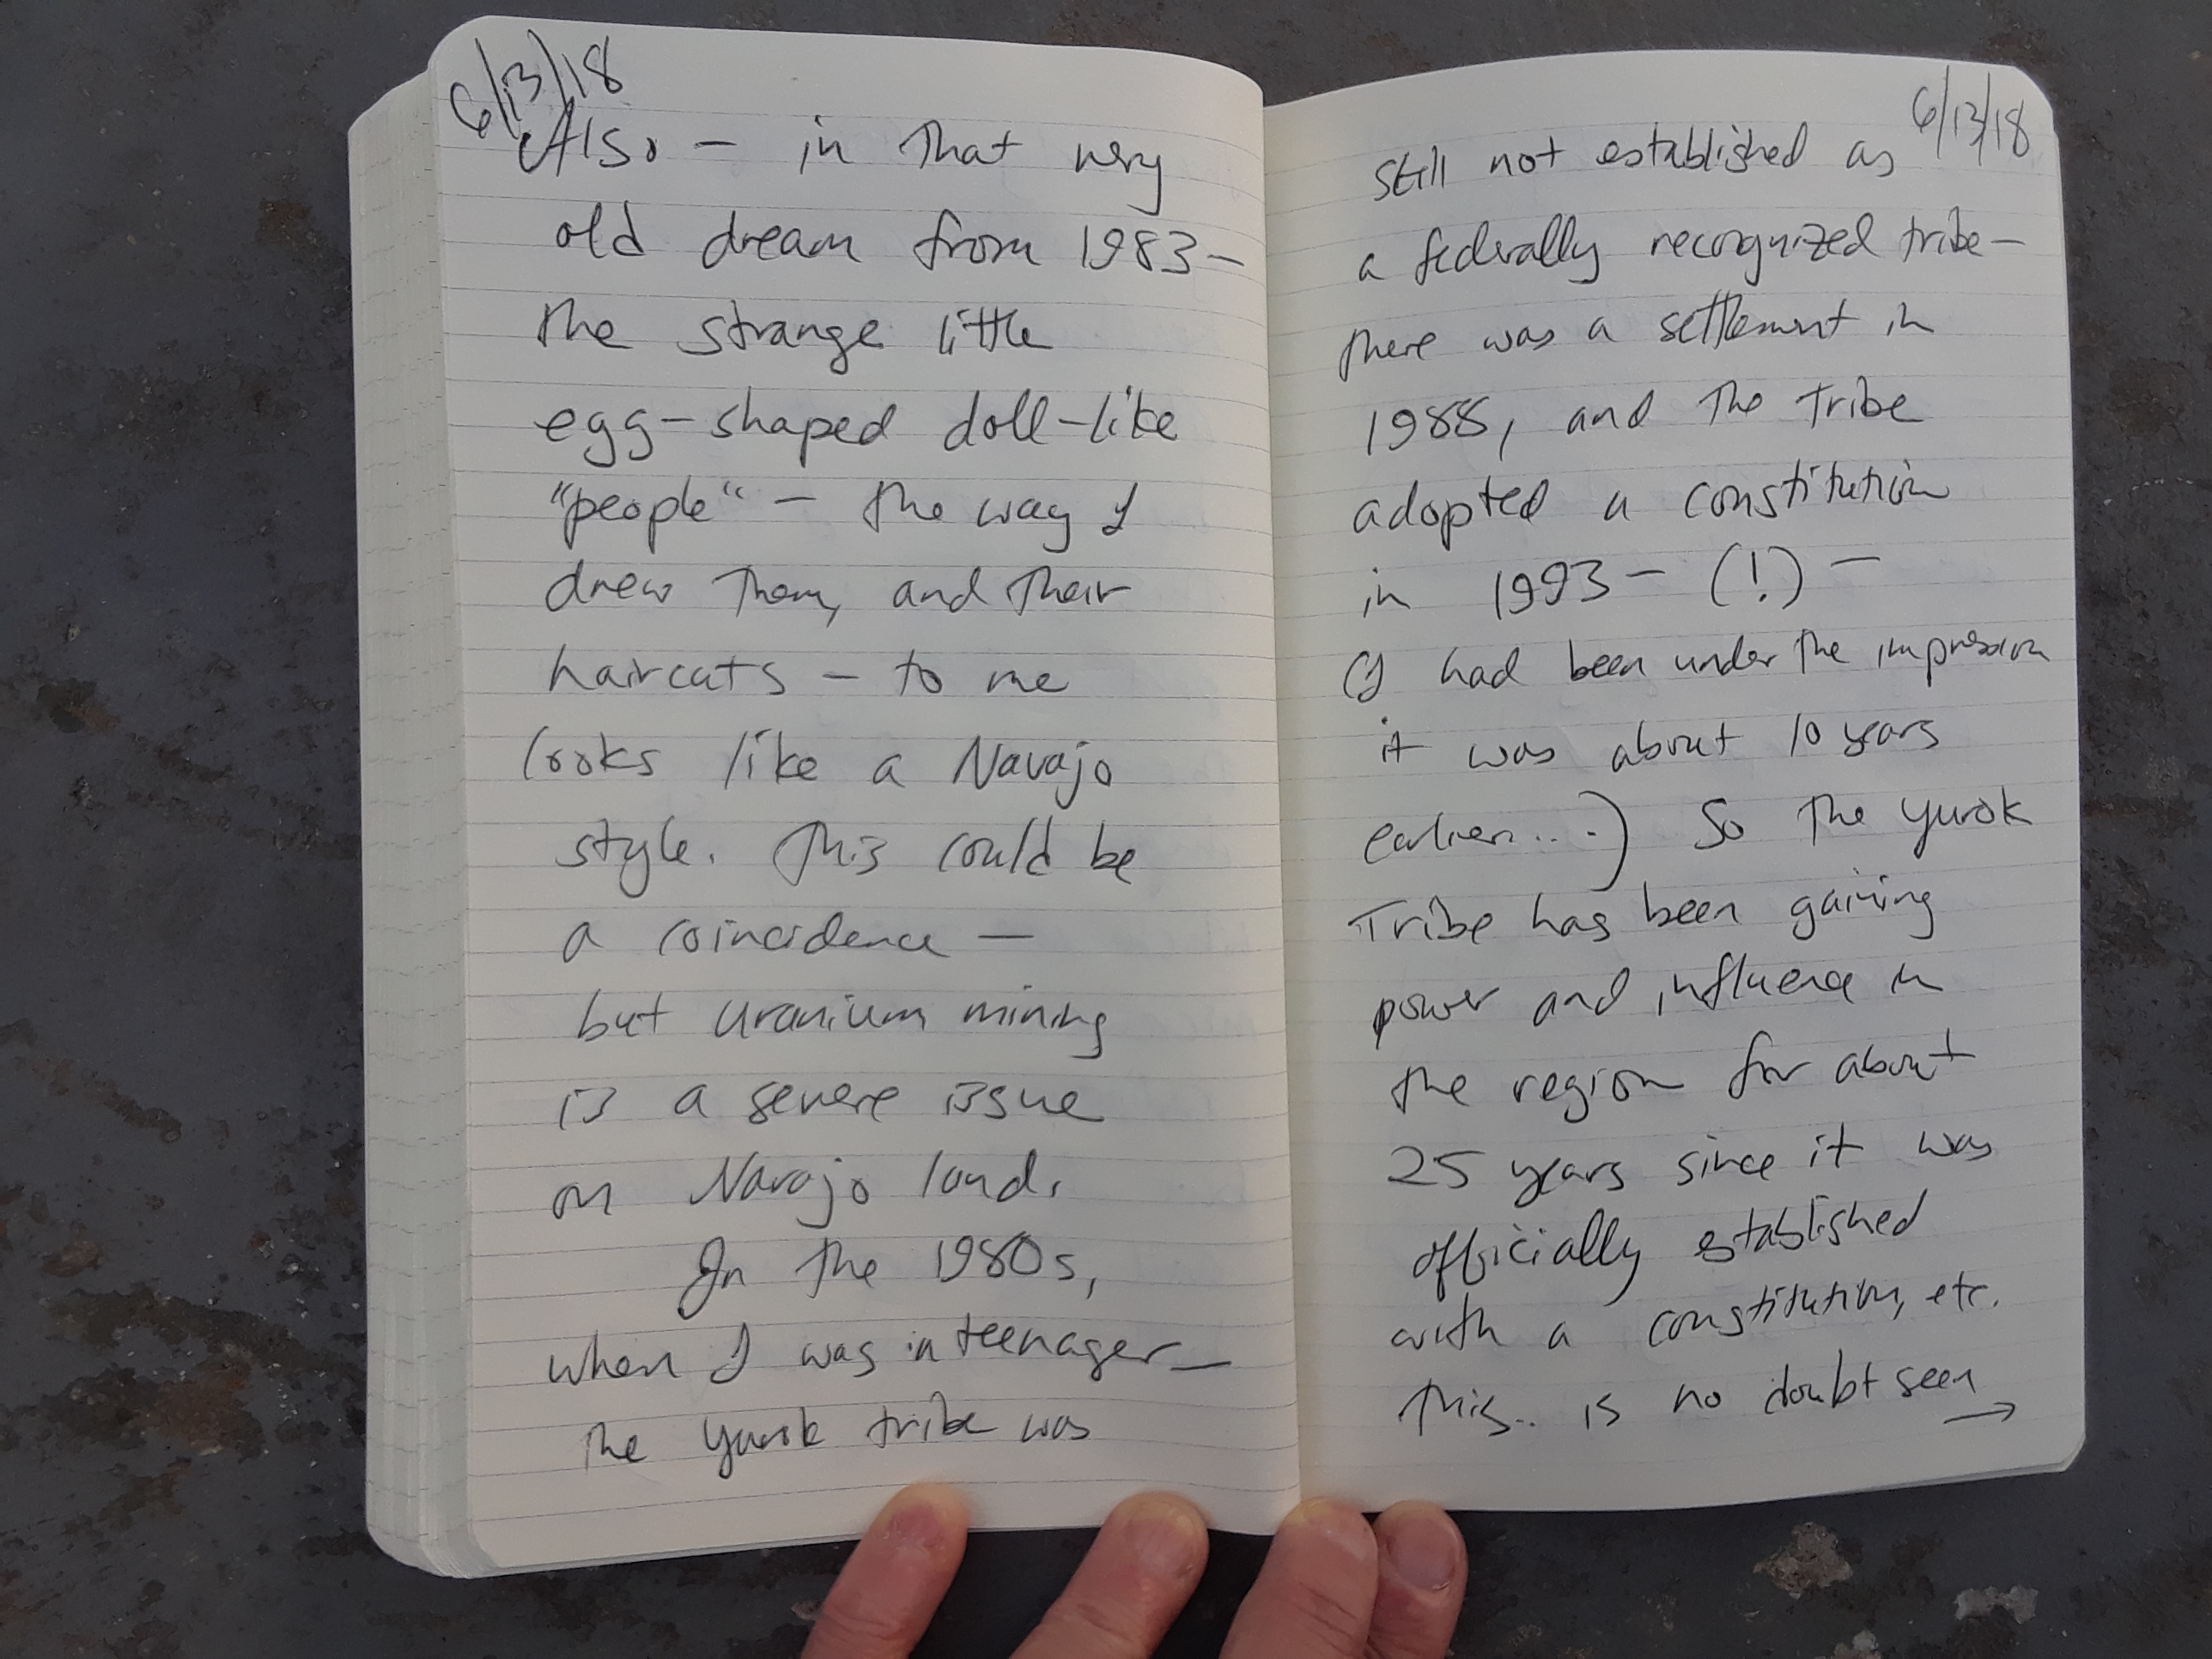 6/13/18
Also — in that very
old dream from 1983 —
the strange little
egg-shaped doll-like
"people" — the way I
drew them, and their
haircuts — to me
looks like a Navajo
style. This could be
a coincidence —
but uranium mining
is a severe issue
on Navajo land.
In the 1980s,
when I was a teenager —
the Yurok tribe was
6/13/18
still not established as
a federally recognized tribe —
there was a settlement in
1988, and the tribe
adopted a constitution
in 1993 — (!) —
(I had been under the impression
it was about 10 years
earlier....) So the Yurok
Tribe has been gaining
power and influence in
the region for about
25 years since it was
officially established
with a constitution, etc.
This.. is no doubt seen
→